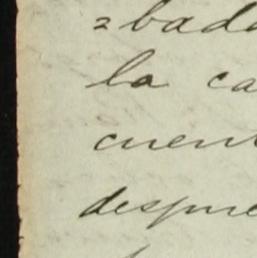 =bada
la ca
cuent
despue